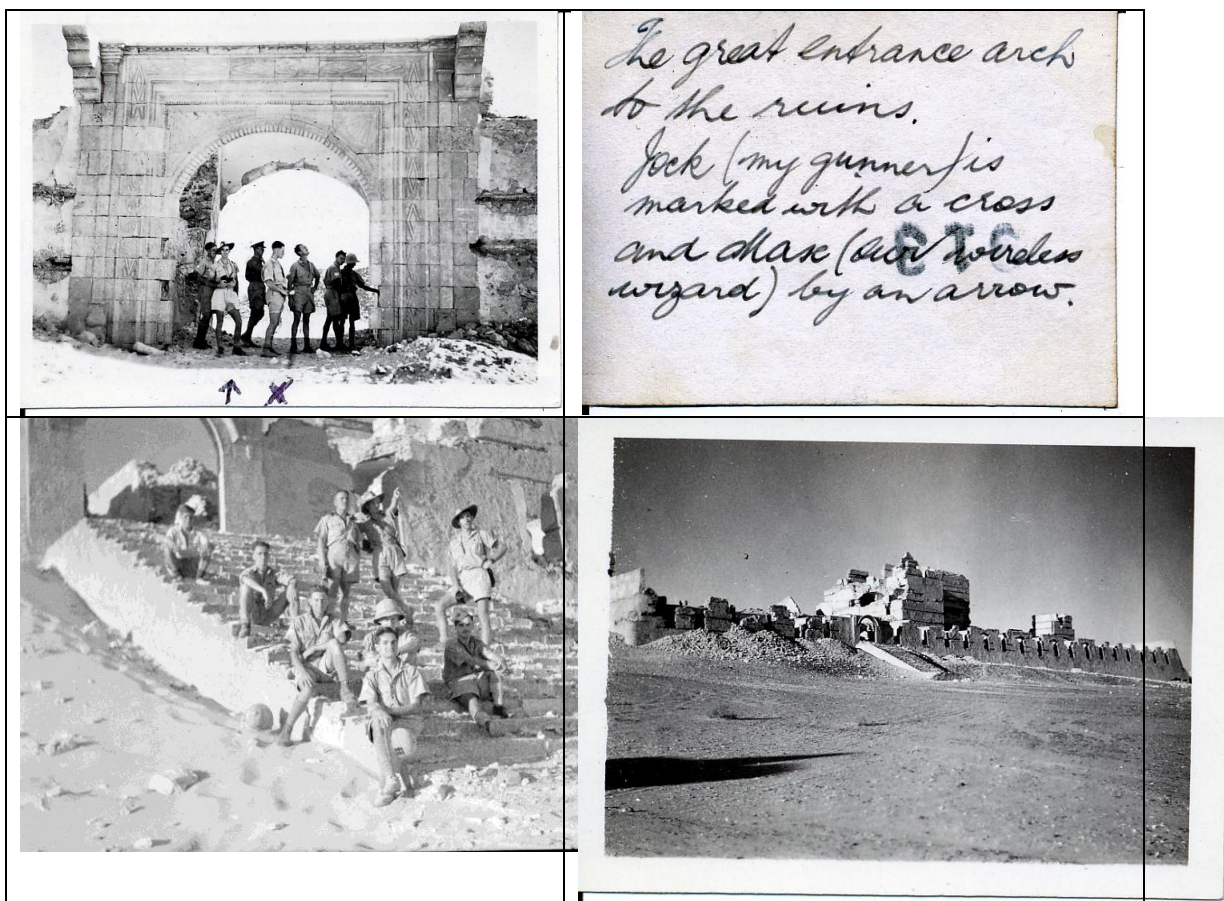 The great entrance arch
to the ruins.
Jock (my gunner) is
marked with a cross
and Max (our wireless
wizard) by an arrow.